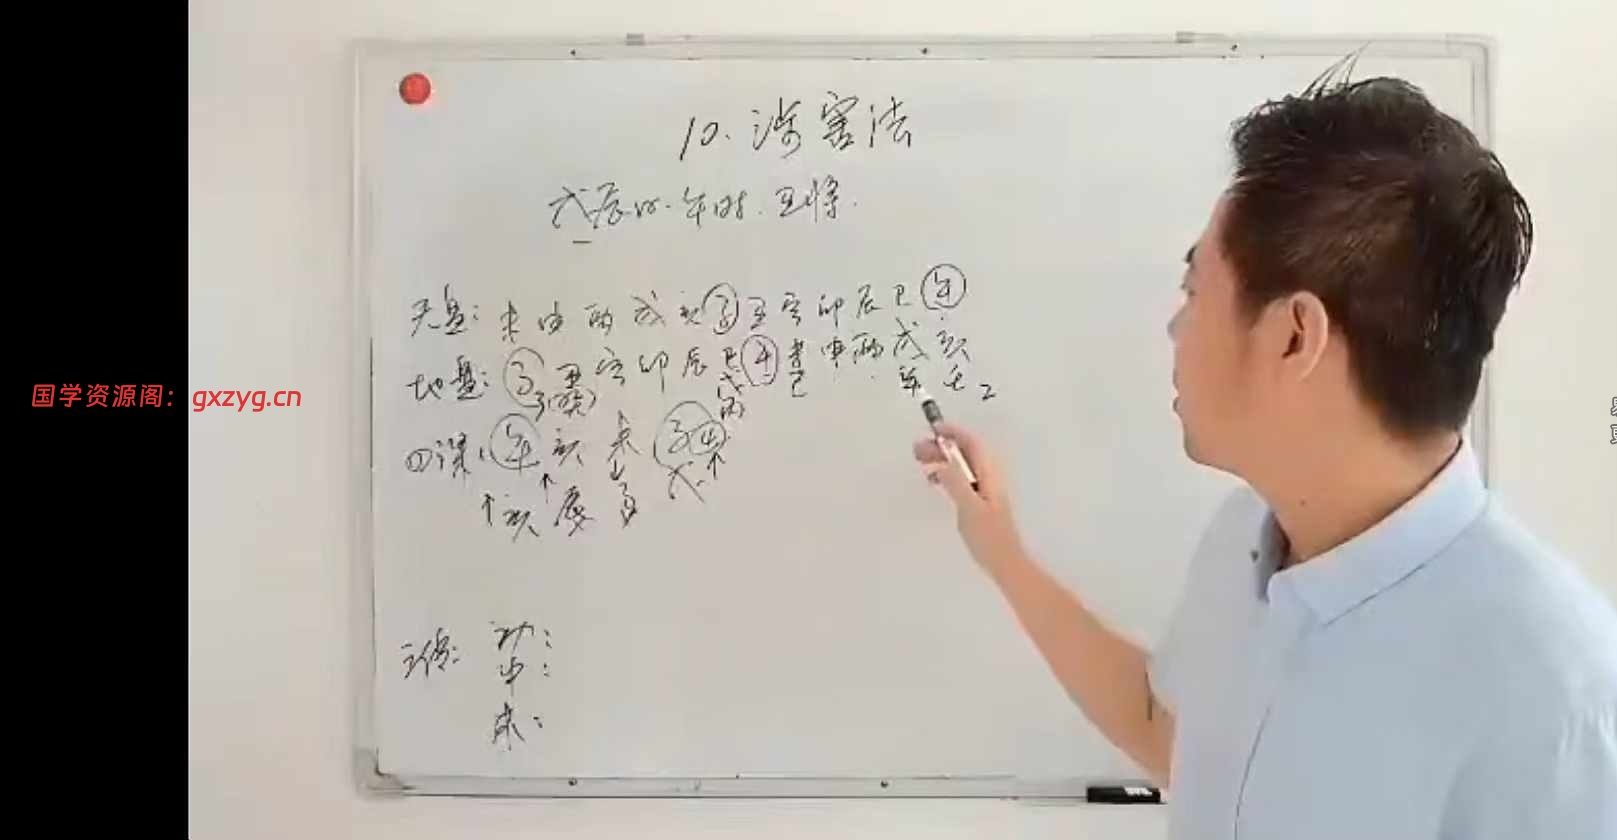 10. 涉害法
戊辰日. 午时. 丑将.
天盘: 未申酉戌亥子丑寅卯辰巳午
地盘: 子丑寅卯辰巳午未申酉戌亥
子(癸)
戊
丙
辛 壬 2
国学资源阁：gxzyg.cn
①课: 午 亥 未 子
亥 辰 子 戊
三传: 初:
中:
末: